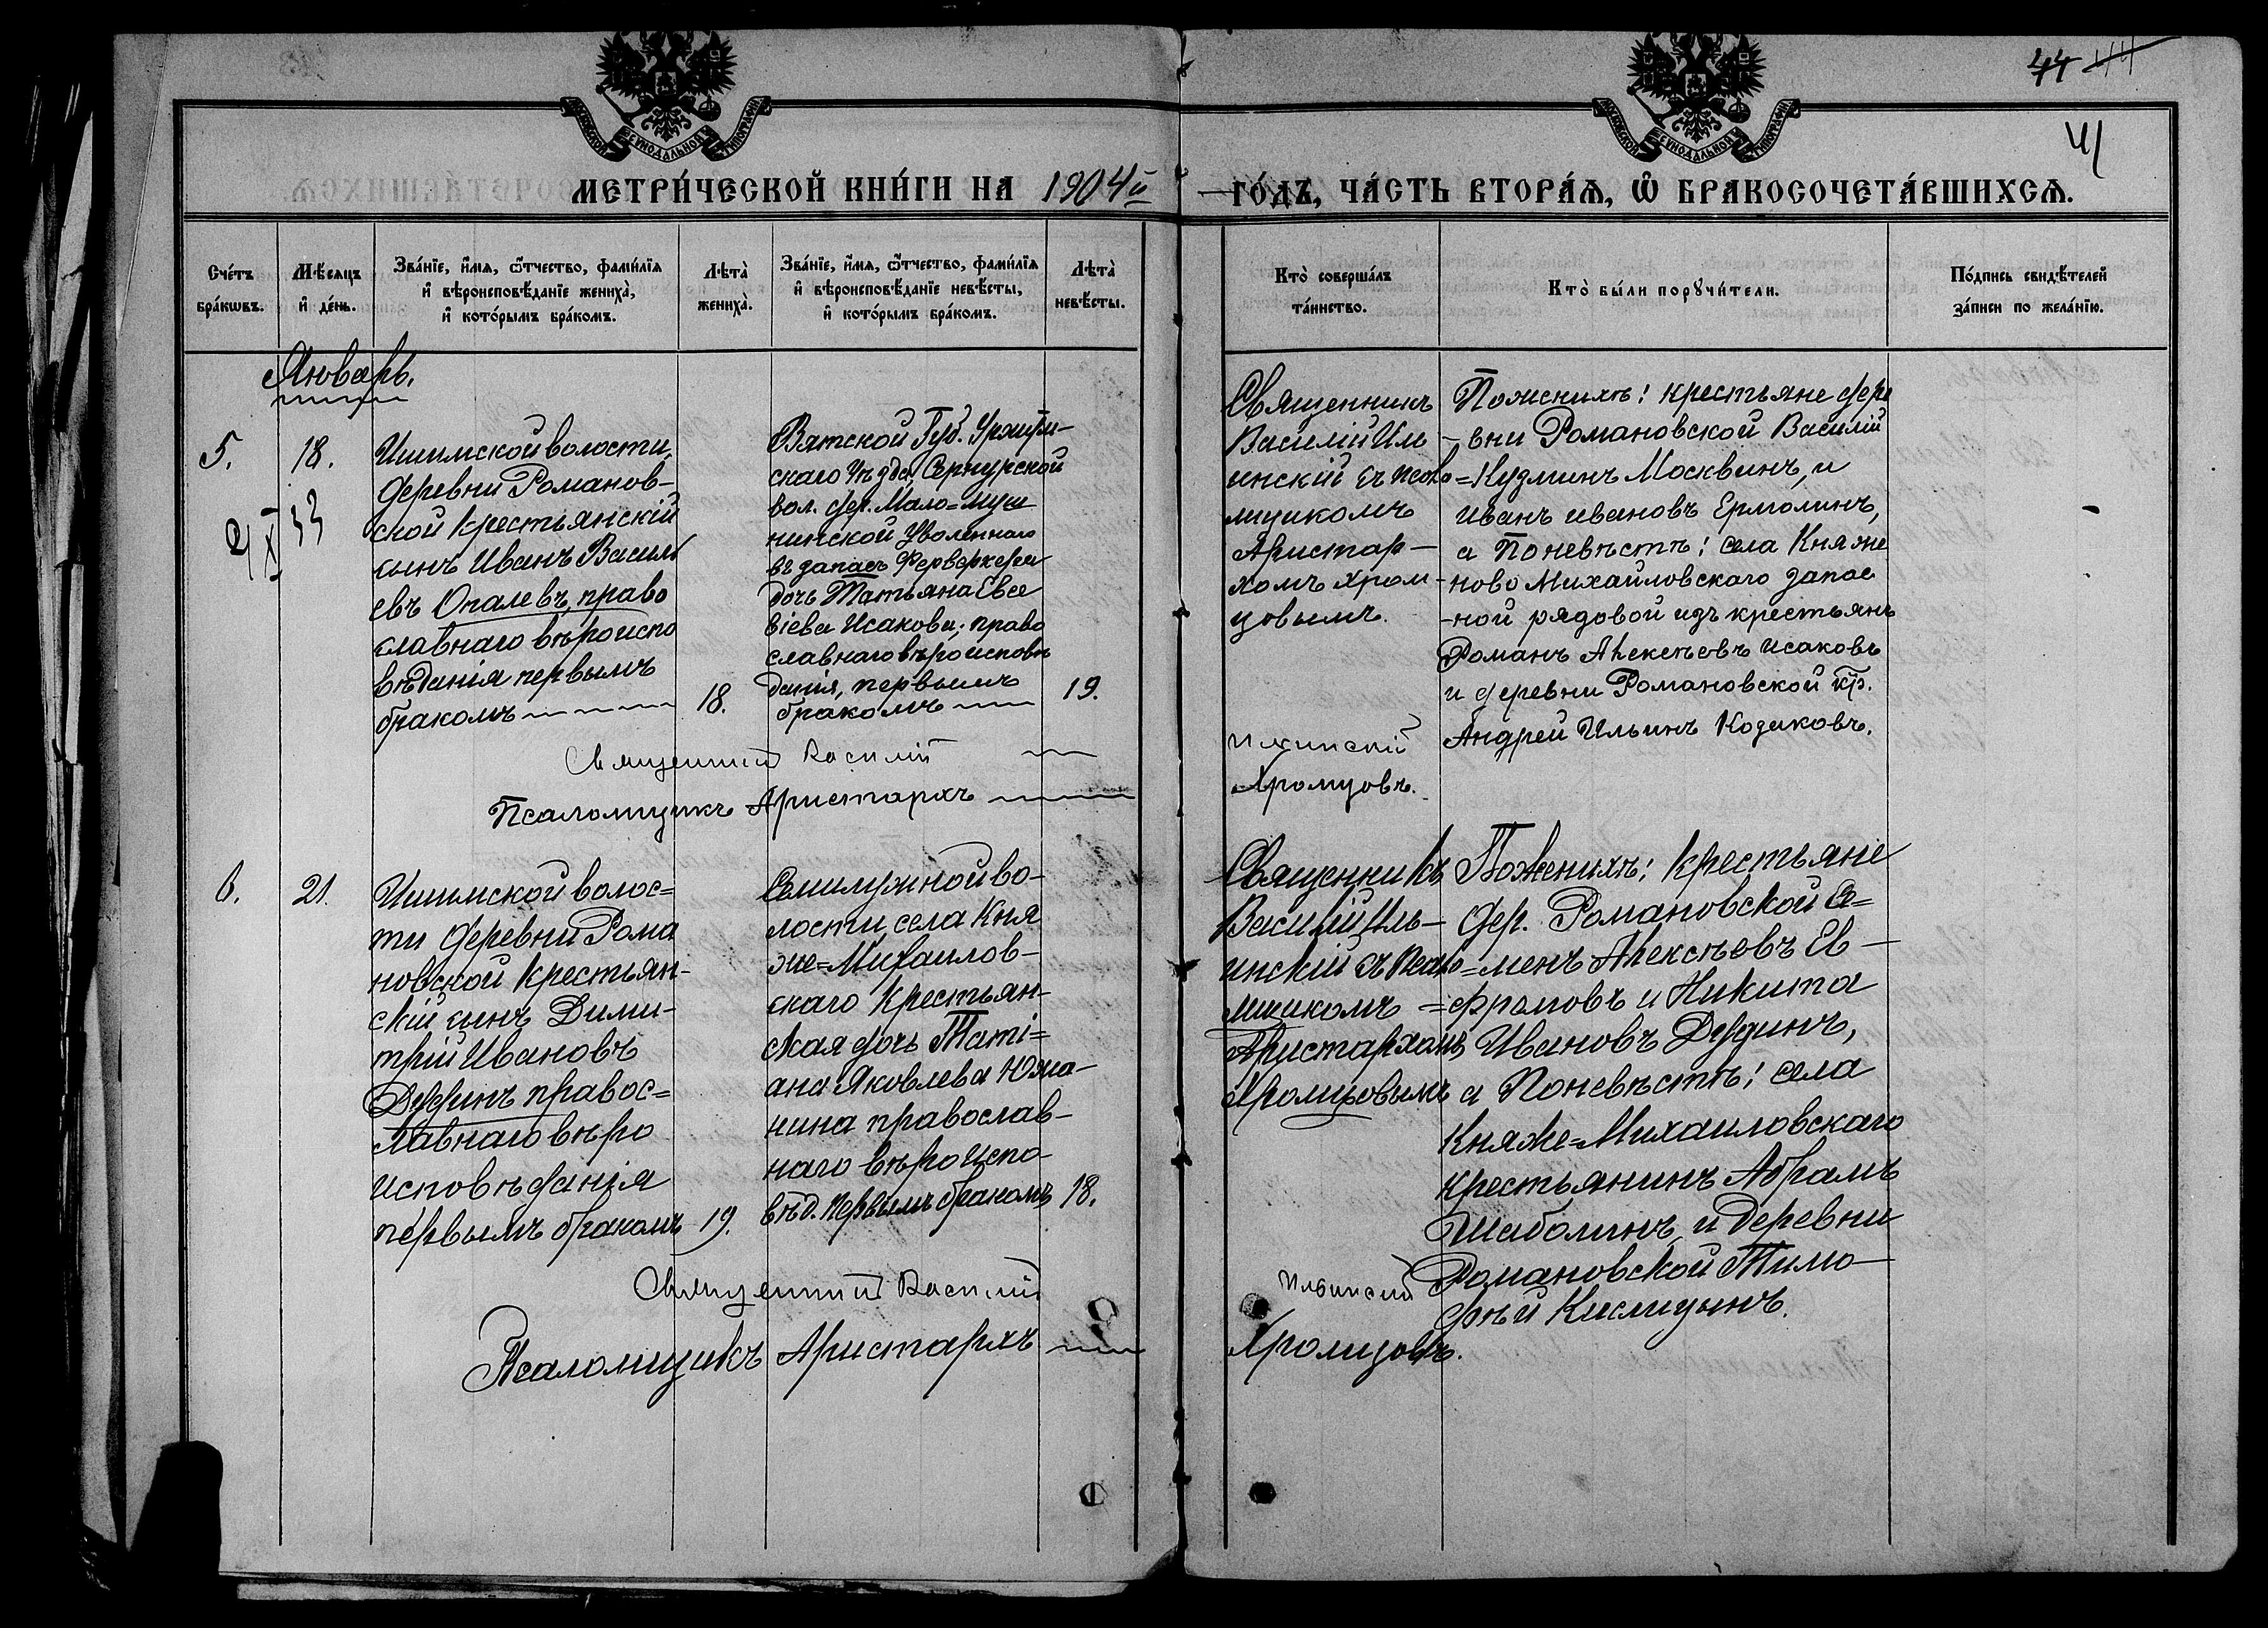 44 44
41
МОСКОВСКОЙ СѴНОДАЛЬНОЙ ТИПОГРАФІИ
МОСКОВСКОЙ СѴНОДАЛЬНОЙ ТИПОГРАФІИ
МЕТРИ́ЧЕСКОЙ КНИ́ГИ НА 1904й
ГО́ДЪ, ЧА́СТЬ ВТОРА́Ѧ, Ѽ БРАКОСОЧЕТА́ВШИХСѦ.
Сче́тъ
бра́кѡвъ.
Мѣ́сяцъ
и҆ де́нь.
Зва́нїе, и҆́мѧ, ѻ҆́тчество, фами́лїѧ
и҆ вѣроисповѣ́данїе жениха̀,
и҆ кото́рымъ бра́комъ.
Лѣ́та
жениха̀.
Зва́нїе, и҆́мѧ, ѻ҆́тчество, фами́лїѧ
и҆ вѣроисповѣ́данїе невѣ́сты,
и҆ кото́рымъ бра́комъ.
Лѣ́та
невѣ́сты.
Кто̀ соверша́лъ
та́инство.
Кто̀ бы́ли порꙋчи́тели.
По́дпись свидѣ́телей
за́писи по жела́нїю.
Январь.
5.
18.
Ишимской волости,
деревни Романов-
ской крестьянскій
сынъ Иванъ Василь
евъ Опалевъ, право
славнаго вѣроиспо
вѣданія первымъ
бракомъ
18.
Вятской Губ. Уржум-
скаго Уѣзда, Сернурской
вол. дер. Мало=Муш
нинской Уволеннаго
въ запасъ Фейерверкера
дочь Татьяна Евсе
віева Исакова; право
славнаго вѣроисповѣ
данія, первымъ
бракомъ
19.
Священникъ
Василій Иль
инскій съ псало
мщикомъ
Аристар-
хомъ Хром-
цовымъ.
По женихѣ: крестьяне дере
-вни Романовской Василій
=Кузминъ Москвинъ, и
Иванъ Ивановъ Ермолинъ,
а По невѣстѣ: села Княже
ново Михайловскаго запас
-ной рядовой изъ крестьянъ
Романъ Алексѣевъ Исаковъ
и деревни Романовской кр.
Андрей Ильинъ Козаковъ.
Священникъ Василій Ильинскій
Псаломщикъ Аристархъ Хромцовъ.
6.
21.
Ишимской волос=
ти деревни Рома
новской Крестьян-
скій сынъ Дими-
трій Ивановъ
Дерринъ правос=
лавнаго вѣро
исповѣданія
первымъ бракомъ
19.
Семилужной во-
лости, села Кня
же=Михаилов-
скаго Крестьян-
ская дочь Таті=
ана Яковлева Юма-
нина православ-
наго вѣроиспо-
вѣд. первымъ бракомъ
18.
Священникъ
Василій Иль-
инскій съ Псало
мщикомъ
Аристархомъ
Хромцовымъ
По женихѣ: Крестьяне
дер. Романовской Се=
=менъ Алексѣевъ Ев-
=фремовъ и Никита
Ивановъ Дерринъ,
а По невѣстѣ: села
Княже=Михаиловскаго
крестьянинъ Абрамъ
Шаболинъ, и деревни
Романовской Тимо-
фѣй Кислицынъ.
Священникъ Василій Ильинскій
Псаломщикъ Аристархъ Хромцовъ.